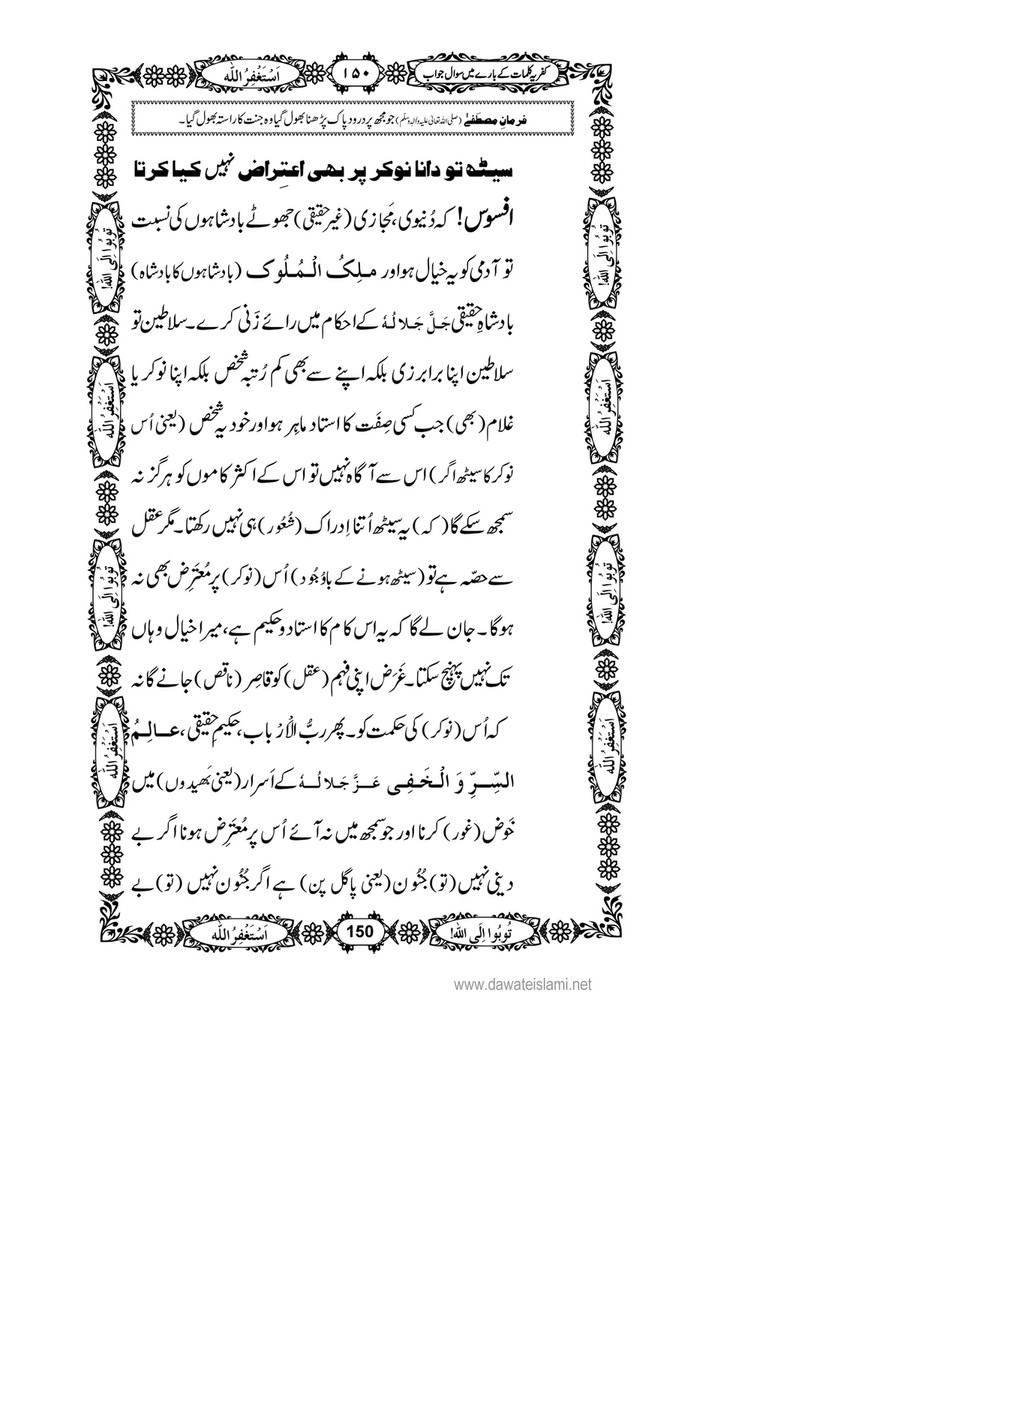 کفریہ کلمات کے بارے میں سوال جواب ۱۵۰ اَسْتَغْفِرُ اللّٰه
فرمانِ مصطفےٰ (صلی اللہ تعالیٰ علیہ والہ وسلّم) جو مجھ پر درود پاک پڑھنا بھول گیا وہ جنت کا راستہ بھول گیا۔
سیٹھ تو دانا نوکر پر بھی اعتِراض نہیں کیا کرتا
افسوس! کہ دُنیوی، مَجازی (غیر حقیقی) جھوٹے بادشاہوں کی نسبت
تو آدمی کو یہ خیال ہو اور مـلِکُ الْـمُـلُوک (بادشاہوں کا بادشاہ)
بادشاہِ حقیقی جَلَّ جَلالُہٗ کے احکام میں رائے زَنی کرے۔ سلاطین تو
سلاطین اپنا برابر زی بلکہ اپنے سے بھی کم رُتبہ شخص بلکہ اپنا نوکر یا
غلام (بھی) جب کسی صِفَت کا استاد ماہِر ہو اور خود یہ شخص (یعنی اُس
نوکر کا سیٹھ اگر) اس سے آگاہ نہیں تو اس کے اکثر کاموں کو ہرگز نہ
سمجھ سکے گا (کہ) یہ سیٹھ اُتنا اِدراک (شُعُور) ہی نہیں رکھتا۔ مگر عقل
سے حصّہ ہے تو (سیٹھ ہونے کے باوُجُود) اُس (نوکر) پر مُعتَرِض بھی نہ
ہوگا۔ جان لے گا کہ یہ اس کام کا استاد و حکیم ہے، میرا خیال وہاں
تک نہیں پہنچ سکتا۔ غَرَض اپنی فہم (عقل) کو قاصِر (ناقص) جانے گا نہ
کہ اُس (نوکر) کی حکمت کو۔ پھر ربُّ الْاَرْباب، حکیمِ حقیقی، عـالِمُ
السِّـرِّ وَ الْـخَـفِی عَـزَّ جَلالُـہٗ کے اَسرار (یعنی بَھیدوں) میں
خَوض (غور) کرنا اور جو سمجھ میں نہ آئے اُس پر مُعتَرِض ہونا اگر بے
دینی نہیں (تو) جُنُون (یعنی پاگل پن) ہے اگر جُنُون نہیں (تو) بے
تُوبُوا اِلَی اللّٰه! 150 اَسْتَغْفِرُ اللّٰه
تُوبُوا اِلَی اللّٰه!
اَسْتَغْفِرُ اللّٰه
تُوبُوا اِلَی اللّٰه!
اَسْتَغْفِرُ اللّٰه
تُوبُوا اِلَی اللّٰه!
اَسْتَغْفِرُ اللّٰه
تُوبُوا اِلَی اللّٰه!
اَسْتَغْفِرُ اللّٰه
www.dawateislami.net